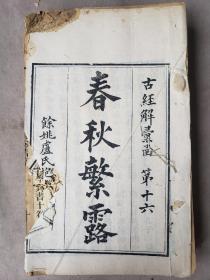 古經解彙函 第十六
春秋繁露
餘姚盧氏